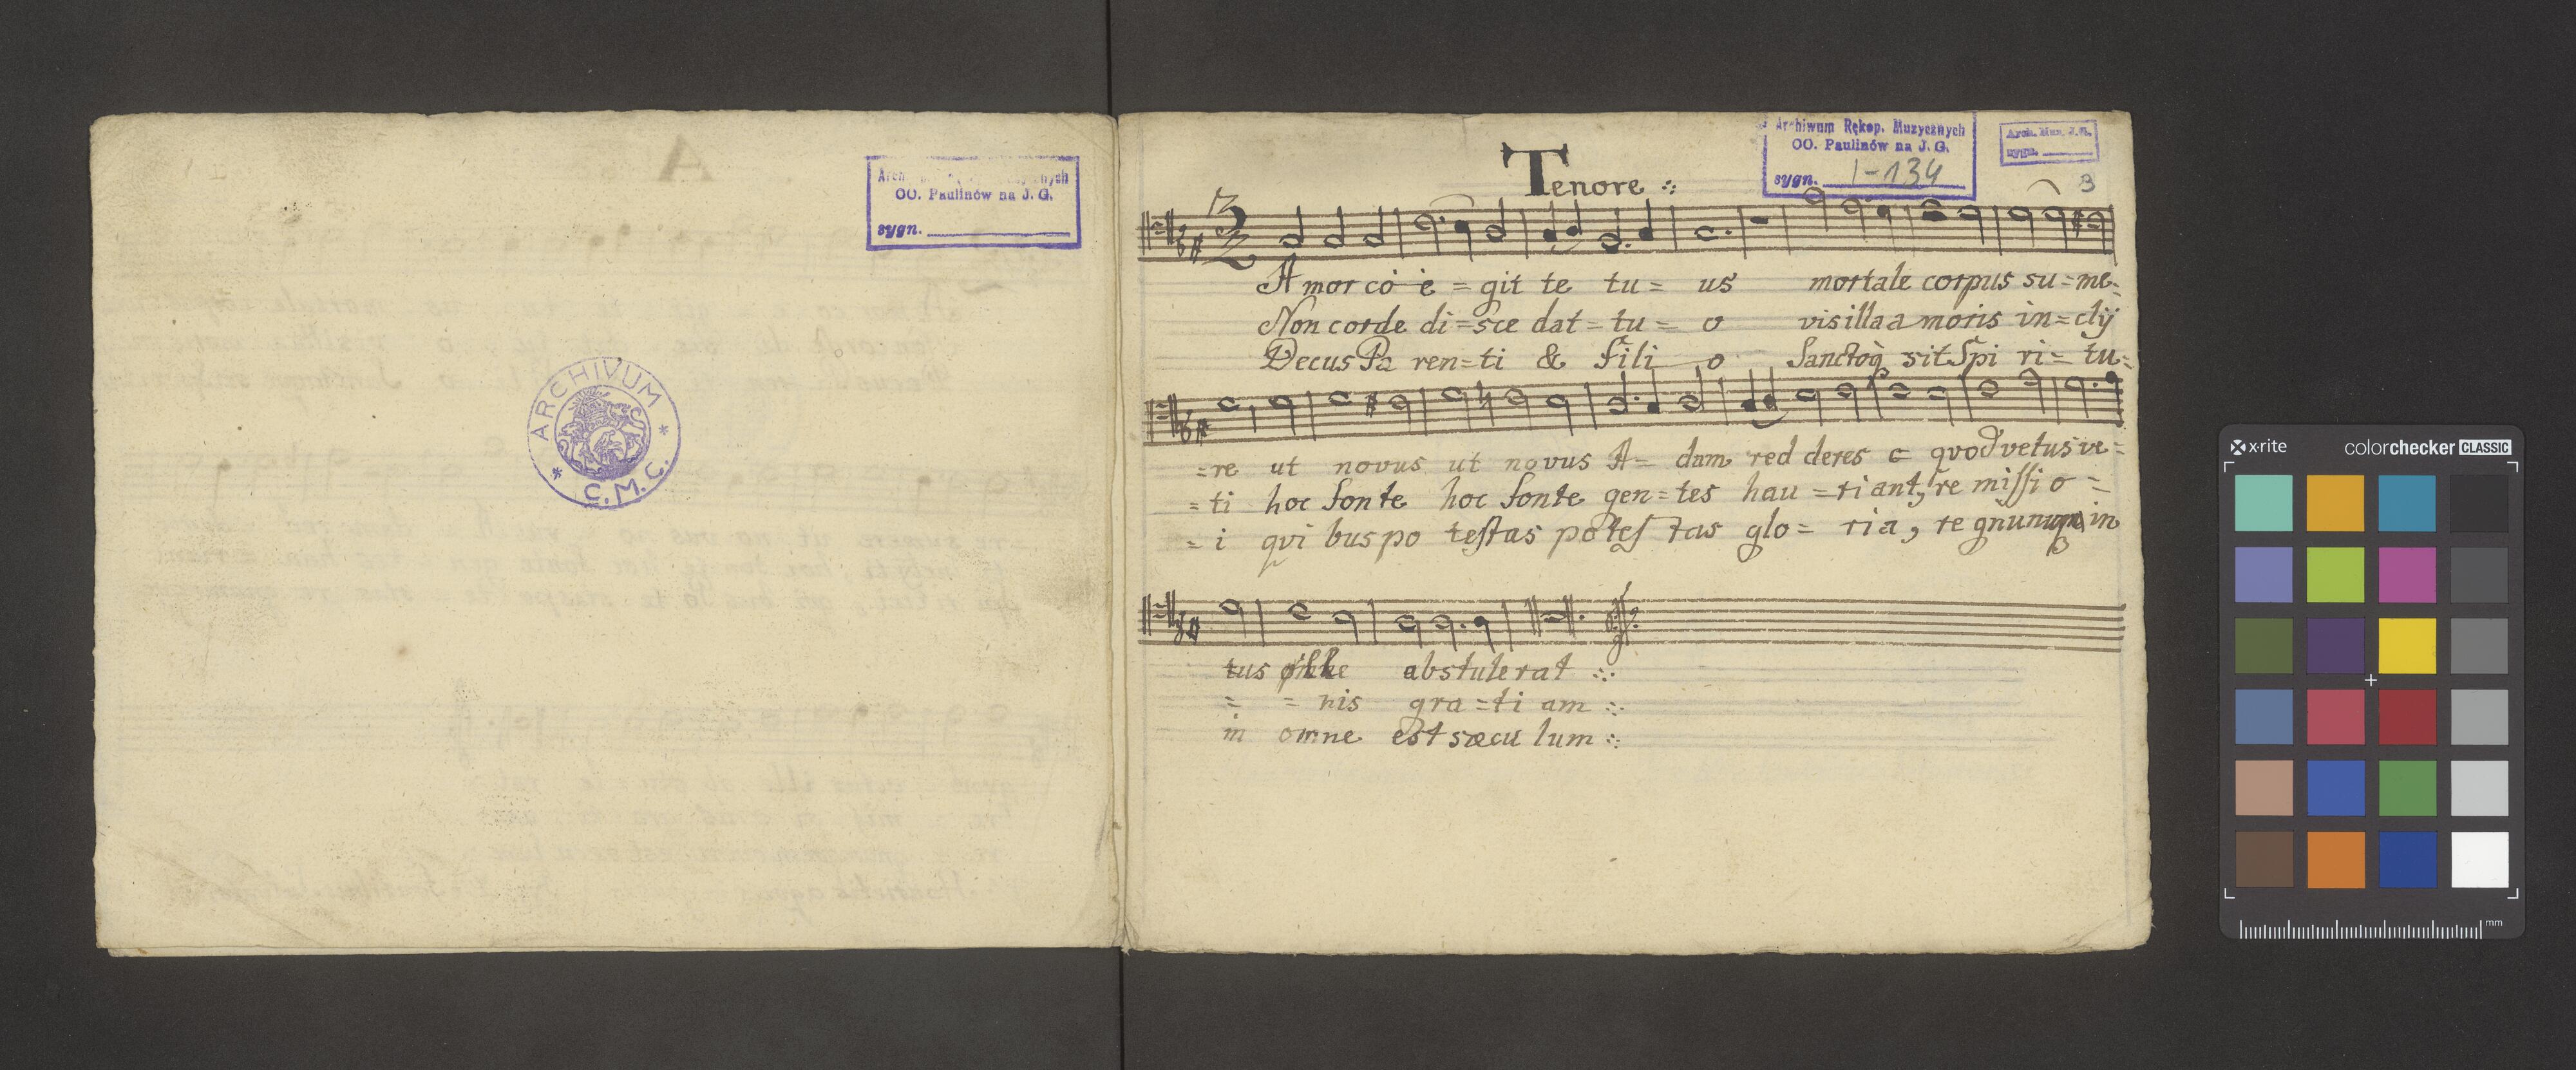 Archiwum Rękop. Muzycznych
OO. Paulinów na J. G.
sygn.
ARCHIVUM
* C. M. C. *
Tenore
Archiwum Rękop. Muzycznych
OO. Paulinów na J. G.
sygn. I-134
Arch. Muz. J. G.
sygn.
3
3
2
Amor cò è = git te tu = us mortale corpus su = me =
Non corde di = sce dat = tu = o vis illa a moris in = clÿ
Decus Pa ren = ti & Fili o Sanctoq sit Spi ri = tu =
= re ut novus ut novus A = dam red deres c quod vetus ve =
= ti hoc fonte hoc fonte gen = tes hau = riant, re missi o =
= i qvi bus po testas potes tas glo = ria, re gnumque in
tus ille abstulerat
= = nis gra = ti am
in omne est sæcu lum
x-rite colorchecker CLASSIC
mm